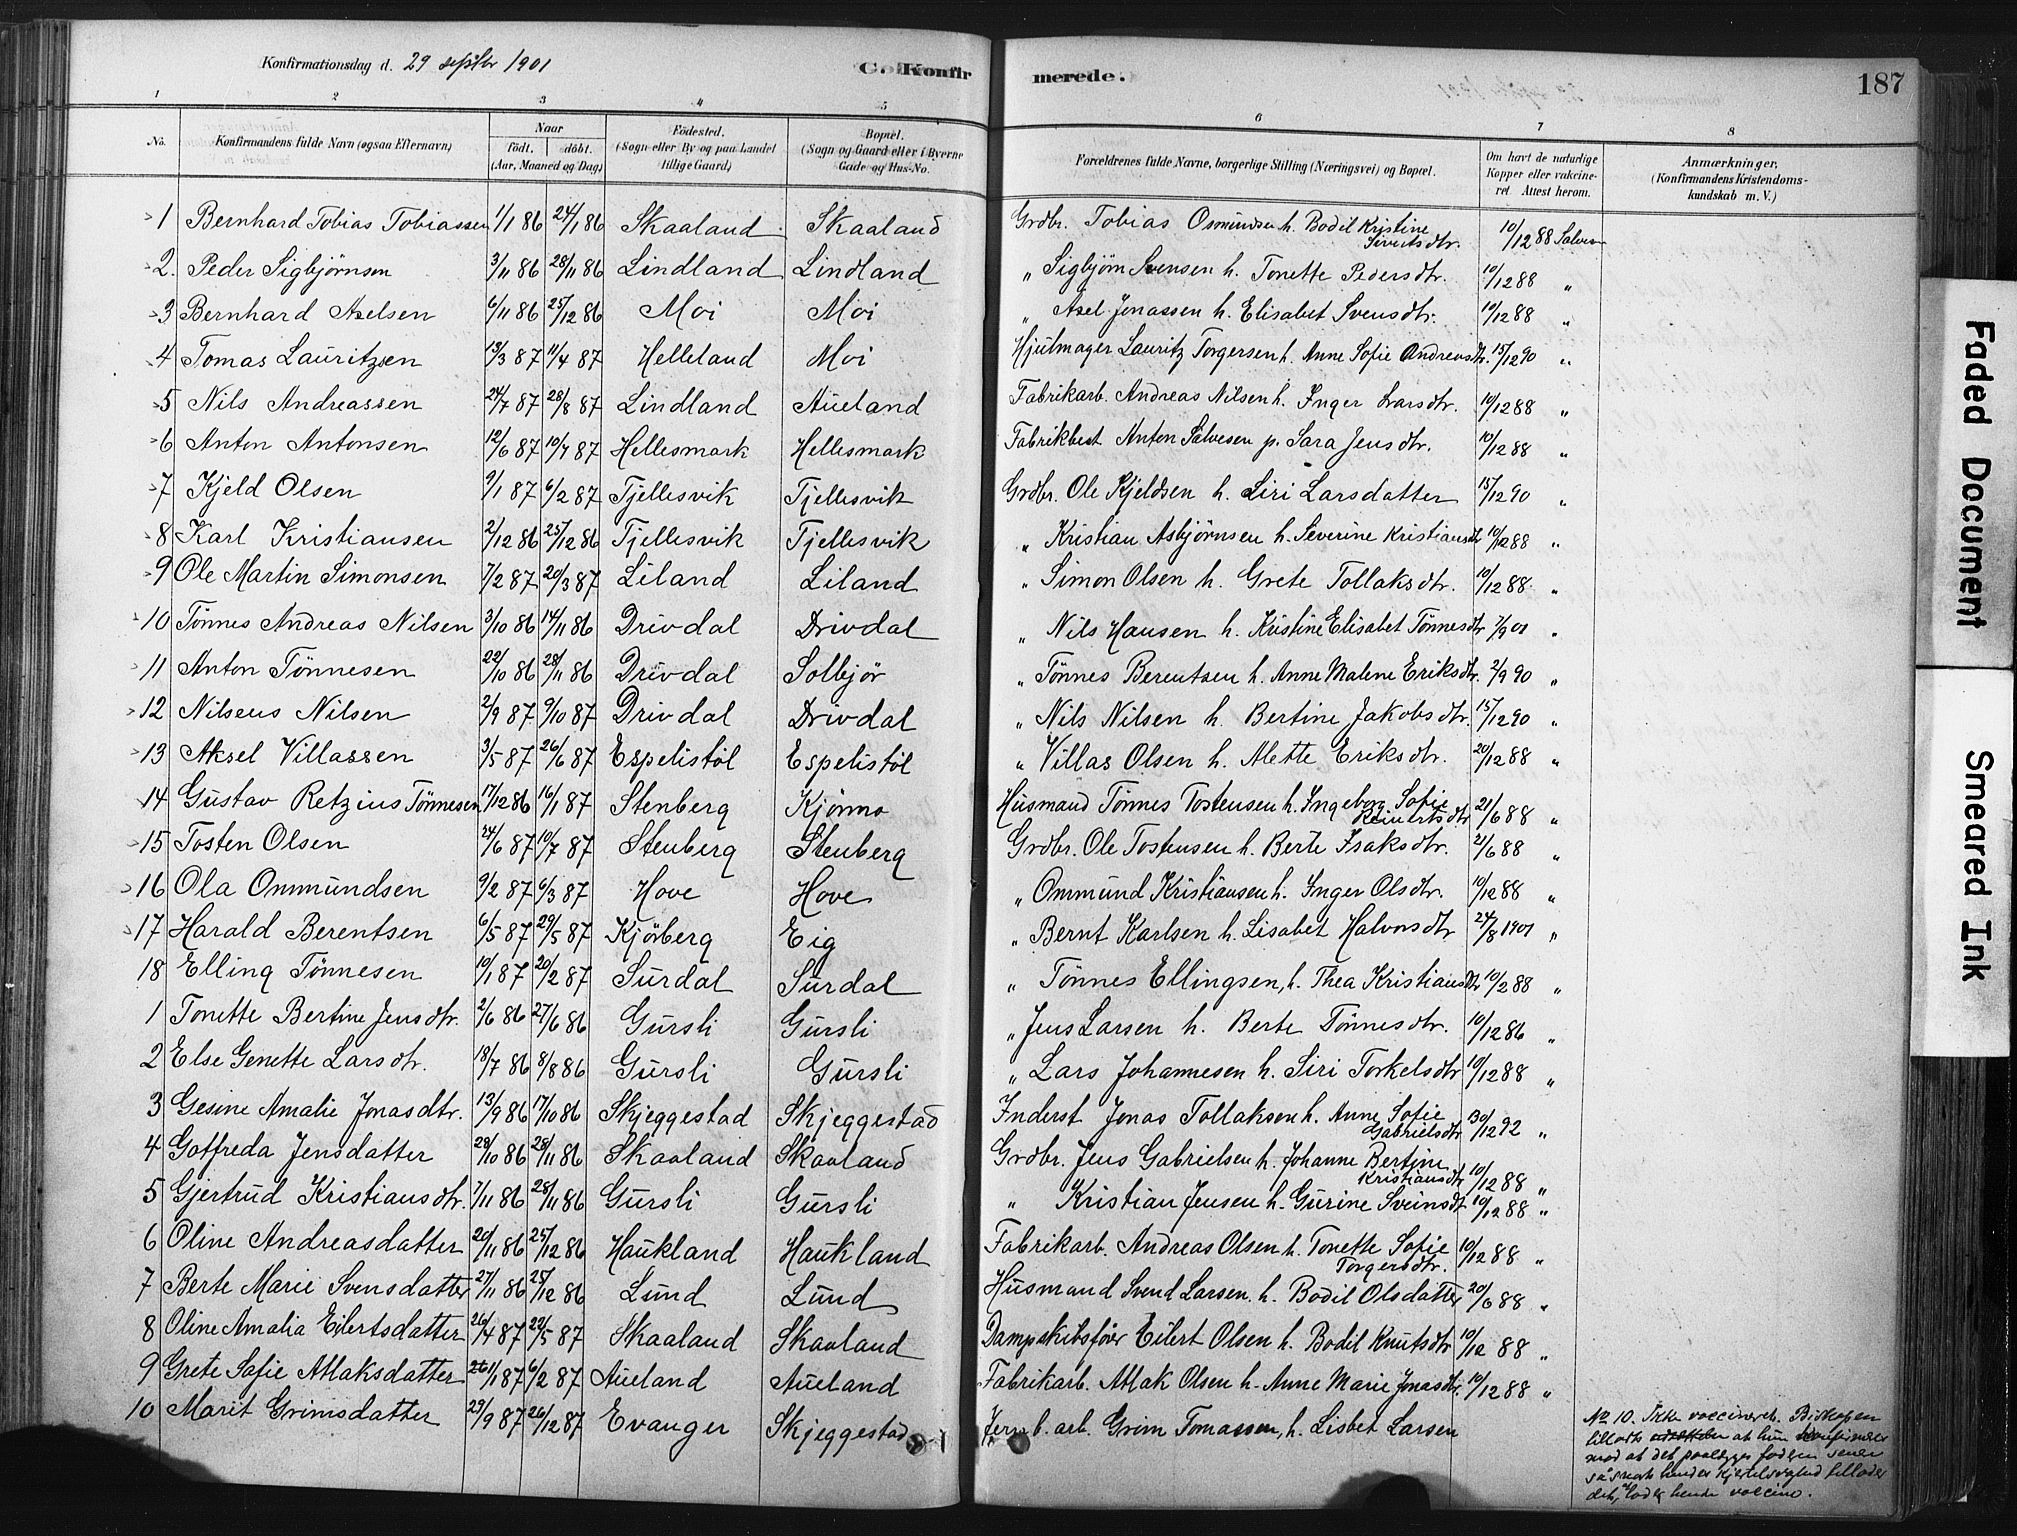 Konfirmationsdag d. 29 septbr 1901
C. Konfirmerede.
187
1 2 3 4 5 6 7 8
No.
Konfirmandens fulde Navn (ogsaa Efternavn)
Naar
født. døbt.
(Aar, Maaned og Dag)
Fødested.
(Sogn eller By og paa Landet
tillige Gaard)
Bopæl.
(Sogn og Gaard eller i Byerne
Gade og Hus-No.
Forældrenes fulde Navne, borgerlige Stilling (Næringsvei) og Bopæl.
Om havt de naturlige
Kopper eller vakcine-
ret. Attest herom.
Anmærkninger,
(Konfirmandens Kristendoms-
kundskab m. V.)
1 Bernhard Tobias Tobiassen 1/1 86 24/1 86 Skaaland Skaaland Grdbr. Tobias Osmundsen h. Bodil Kristine Sivertsdtr. 10/12 88 Salvesen
2. Peder Sigbjørnsen 3/11 86 28/11 86 Lindland Lindland " Sigbjørn Svensen h. Tonette Pedersdtr. 10/12 88 "
3 Bernhard Axelsen 6/11 86 25/12 86 Moi Moi " Axel Jonassen h. Elisabet Svensdtr. 10/12 88 "
4 Tomas Lauritzen 13/3 87 11/4 87 Helleland Moi Hjulmager Lauritz Torgersen h. Anne Sofie Andreasdtr. 15/12 90 "
5 Nils Andreassen 24/7 87 28/8 87 Lindland Aueland Fabrikarb. Andreas Nilsen h. Inger Larsdtr. 10/12 88 "
6 Anton Antonsen 12/6 87 10/7 87 Hellesmark Hellesmark Fabrikbest Anton Salvesen p. Sara Jensdtr. 10/12 88 "
7 Kjeld Olsen 9/1 87 6/2 87 Tjellesvik Tjellesvik Grdbr. Ole Kjeldsen h. Siri Larsdatter 15/12 90 "
8 Karl Kristiansen 2/12 86 25/12 86 Tjellesvik Tjellesvik " Kristian Asbjørnsen h. Severine Kristiansdtr 10/12 88 "
9 Ole Martin Simonsen 7/2 87 20/3 87 Liland Liland " Simon Olsen h. Grete Tollaksdtr. 10/12 88 "
10 Tønnes Andreas Nilsen 3/10 86 14/11 86 Drivdal Drivdal " Nils Hansen h. Kristine Elisabet Tønnesdtr 7/9 01 "
11 Anton Tønnesen 22/10 86 28/11 86 Drivdal Solbjør " Tønnes Berentsen h. Anne Malene Eriksdtr. 2/9 90 "
12 Nilseus Nilsen 2/9 87 9/10 87 Drivdal Drivdal " Nils Nilsen h. Bertine Jakobsdtr. 15/12 90 "
13 Aksel Villassen 3/5 87 26/6 87 Espelistøl Espelistøl " Villas Olsen h. Mette Eriksdtr. 20/12 88 "
14 Gustav Retzius Tønnesen 17/12 86 16/1 87 Stenberg Kjørmo Husmand Tønnes Tostensen h. Ingeborg Sofie Reinertsdtr 21/6 88 "
15 Tosten Olsen 24/6 87 10/7 87 Stenberg Stenberg Grdbr. Ole Tostensen h. Berte Isaksdtr. 21/6 88 "
16 Ola Ommundsen 9/2 87 6/3 87 Hove Hove " Ommund Kristiansen h. Inger Olsdtr. 10/12 88 "
17 Harald Berentsen 6/5 87 29/5 87 Kjørberg Eig " Bernt Karlsen h. Lisabet Halvorsdtr 24/8 1901 "
18 Elling Tønnesen 10/1 87 20/2 87 Surdal Surdal " Tønnes Ellingsen, h. Thea Kristiansdtr 10/12 88 "
1 Tonette Bertine Jensdtr. 2/6 86 27/6 86 Gursli Gursli " Jens Larsen h. Berte Tønnesdtr. 10/12 86 "
2 Else Genette Larsdtr. 18/7 86 8/8 86 Gursli Gursli " Lars Johannesen h. Siri Torkelsdtr 10/12 88 "
3 Gesine Amalie Jonasdtr. 13/9 86 17/10 86 Skjeggestad Skjeggestad Inderst Jonas Tollaksen h. Anne Sofie Gabrielsdtr 30/12 92 "
4 Gotfreda Jensdatter 28/10 86 28/11 86 Skaaland Skaaland Grdbr. Jens Gabrielsen h. Johanne Bertine Kristiansdtr 10/12 88 "
5 Gjertrud Kristiansdtr. 7/11 86 28/11 86 Gursli Gursli " Kristian Jensen h. Gurine Sveinsdt 10/12 88 "
6 Oline Andreasdatter 20/11 86 25/12 86 Haukland Haukland Fabrikarb. Andreas Olsen h. Tonette Sofie Torgersdtr. 10/12 88 "
7 Berte Marie Svensdatter 27/11 86 25/12 86 Lund Lund Husmand Svend Larsen h. Bodil Olsdatter 20/6 88 "
8 Oline Amalia Eilertsdatter 26/4 87 22/5 87 Skaaland Skaaland Dampskibsfører Eilert Olsen h. Bodil Knutsdtr 10/12 88 "
9 Grete Sofie Atlaksdatter 26/1 87 6/2 87 Aueland Aueland Fabrikarb. Atlak Olsen h. Anne Marie Jonasdtr. 10/12 88 "
10 Marit Grimsdatter 29/9 87 26/12 87 Evanger Skjeggestad Jernb. arb. Grim Tomassen, h. Lisbet Larsen
No 10. Ikke vaccineret. Biskopen
tillods at hun konfirmeres
mod at det paalægges faderen senere
saasnart hendes tillader
det, lader hende vaccine.
Faded Document
Smeared Ink